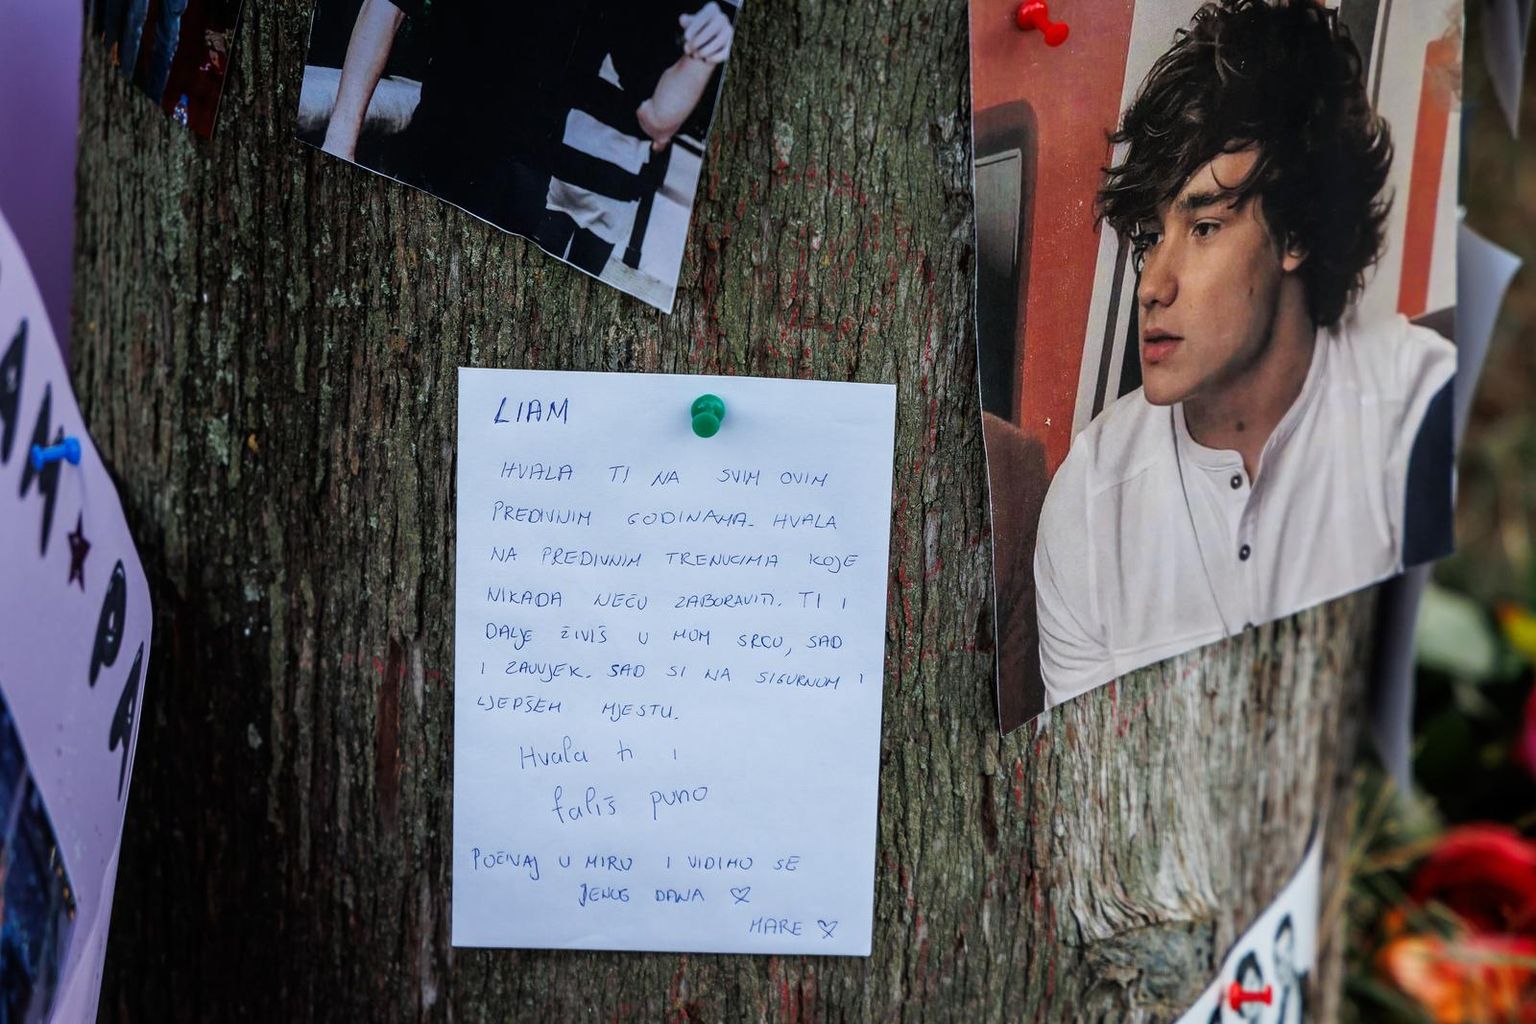 LIAM
HVALA TI NA SVIM OVIM
PREDIVNIM GODINAMA. HVALA
NA PREDIVNIM TRENUCIMA KOJE
NIKADA NEĆU ZABORAVITI. TI I
DALJE ŽIVIŠ U MOM SRCU, SAD
I ZAUVJEK. SAD SI NA SIGURNOM I
LJEPŠEM MJESTU.
Hvala ti i
fališ puno
POČIVAJ U MIRU I VIDIMO SE
JENOG DANA ♡
MARE ♡
AM ★ PA